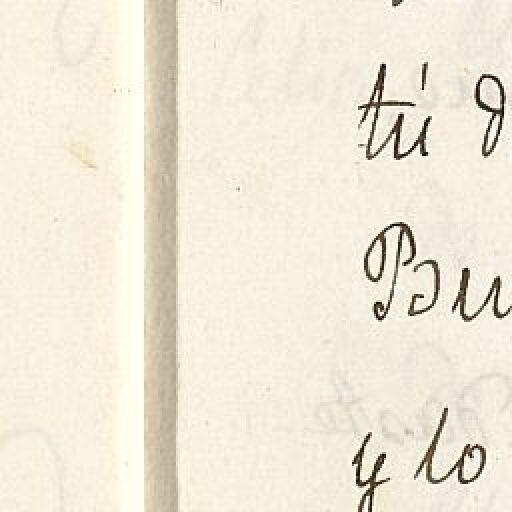 tú d
Bu
y lo